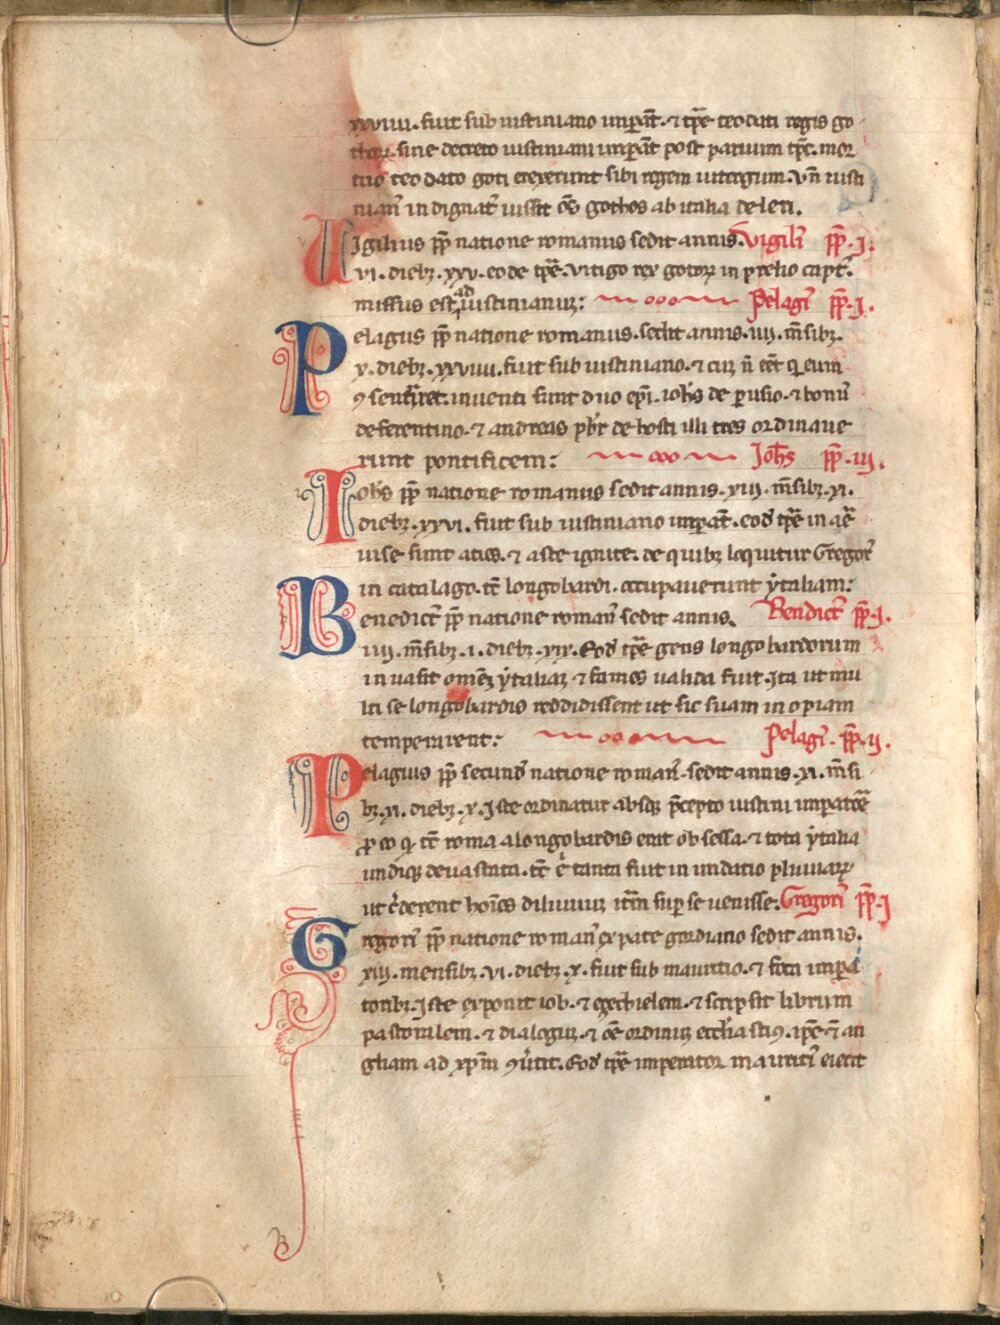 xxviiii. fuit sub iustiniano imperat̄. ⁊ tp̄e teodati regis go
thoꝝ. sine decreto iustiniani imperat̄ post paruum tp̄c. mor
tuo teodato goti erexerunt sibi regem uitirgum. vn̄ iusti
nian̄ indignat̄ iussit oē̄s gothos ab italia deleri.
Uigilius pp̄ natione romanus sedit annis. Uigili pp̄. I.
vi. diebꝫ. xxv. eode tp̄e. vitigo rex gotoꝝ in prelio capt̄.
missus est ad iustinianuꝫ: Pelagi pp̄. I.
Pelagus pp̄ natione romanus. sedit annis. iiii. m̄sibꝫ.
x. diebꝫ. xxviiii. fuit sub iustiniano. ⁊ cuꝫ n̄ eēt qi eum
ꝯsenṡiret. inventi sunt duo epī. ioh̄s de perusio. ⁊ bonus
de ferentino. ⁊ andreas pb̄r de hosti illi tres ordinaue
runt pontificem: Joh̄s pp̄. iii.
Iohs pp̄ natione romanus sedit annis. xiii. m̄sibꝫ. xi.
diebꝫ. xxvi. fuit sub iustiniano imperat̄. eod tp̄e in aē
uise sunt acies. ⁊ aste ignite. de quibꝫ loquitur Gregor̄
in catalago. tc̄ longobardi. occupauerunt ẏtaliam:
Benedict̄ pp̄ natione roman̄ sedit annis. Bendict̄ pp̄. I.
iiii. m̄sibꝫ. i. diebꝫ. xix. Eod tp̄e gens longobardorum
inuasit omēꝫ ẏtaliaꝫ ⁊ fames ualida fuit. Ita ut mu
lti se longobardis reddidissent ut sic suam inopiam
temperarent: Pelagi. pp̄. ii.
Pelagius pp̄ secund̄ natione roman̄. sedit annis. xi. m̄si
bꝫ. xi. diebꝫ. x. Iste ordinatur absqꝫ p̄cepto iustini imperat̄
ꝓ eo qꝫ tc̄ roma a longobardis erat obsessa. ⁊ tota ẏtalia
undiqꝫ deuastata. tc̄ ē tanta fuit inundatio pluuiaꝝ
ut c̄derent hoīes diluuiuꝫ itm̄ super se uenisse. Gregori pp̄. I
Gregori pp̄ natione roman̄ ex patre gordiano sedit annis.
xiii. mensibꝫ. vi. diebꝫ. x. fuit sub mauritio. ⁊ foca impera
toribꝫ. Iste exponit iob. ⁊ ezechielem. ⁊ scripsit librum
pastoralem. ⁊ dialoguꝫ. ⁊ oē ordinuꝫ eccl̄iasticuꝫ. ipē ⁊ an
gliam ad xp̄m ꝯu̇tit. Eod tp̄e imperator mauriti eiecit